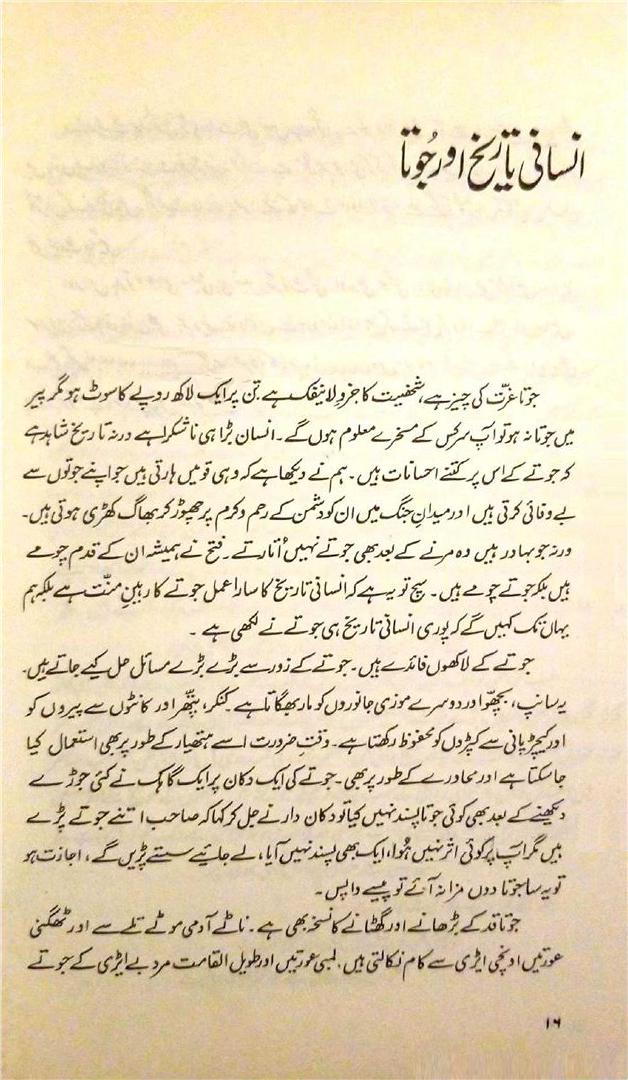 انسانی تاریخ اور جُوتا
جوتا عزّت کی چیز ہے، شخصیت کا جزوِ لا ینفک ہے تن پر ایک لاکھ روپے کا سوٹ ہو مگر پیر
میں جوتا نہ ہو تو آپ سرکس کے مسخرے معلوم ہوں گے۔ انسان بڑا ہی ناشکرا ہے ورنہ تاریخ شاہد ہے
کہ جوتے کے اس پر کتنے احسانات ہیں۔ ہم نے دیکھا ہے کہ وہی قومیں ہارتی ہیں جو اپنے جوتوں سے
بے وفائی کرتی ہیں اور میدانِ جنگ میں ان کو دشمن کے رحم و کرم پر چھوڑ کر بھاگ کھڑی ہوتی ہیں۔
ورنہ جو بہادر ہیں وہ مرنے کے بعد بھی جوتے نہیں اُتارتے۔ فتح نے ہمیشہ ان کے قدم چومے
ہیں بلکہ جوتے چومے ہیں۔ سچ تو یہ ہے کہ انسانی تاریخ کا سارا عمل جوتے کا رہینِ منّت ہے بلکہ ہم
یہاں تک کہیں گے کہ پوری انسانی تاریخ ہی جوتے نے لکھی ہے ۔
جوتے کے لاکھوں فائدے ہیں۔ جوتے کے زور سے بڑے بڑے مسائل حل کیے جاتے ہیں۔
یہ سانپ، بچھّو اور دوسرے موذی جانوروں کو مار بھگاتا ہے۔ کنکر، پتھّر اور کانٹوں سے پیروں کو
اور کیچڑ پانی سے کپڑوں کو محفوظ رکھتا ہے۔ وقتِ ضرورت اسے ہتھیار کے طور پر بھی استعمال کیا
جا سکتا ہے اور محاورے کے طور پر بھی۔ جوتے کی ایک دکان پر ایک گاہک نے کئی جوڑے
دیکھنے کے بعد بھی کوئی جوتا پسند نہیں کیا تو دکان دار نے جل کر کہا کہ صاحب اتنے جوتے پڑے
ہیں مگر آپ پر کوئی اثر نہیں ہُوا، ایک بھی پسند نہیں آیا، لے جائیے سستے پڑیں گے، اجازت ہو
تو یہ سا جوتا دوں مزا نہ آئے تو پیسے واپس۔
جوتا قد کے بڑھانے اور گھٹانے کا نسخہ بھی ہے۔ ناٹے آدمی موٹے تلے سے اور ٹھگنی
عورتیں اونچی ایڑی سے کام نکالتی ہیں۔ لمبی عورتیں اور طویل القامت مرد بے ایڑی کے جوتے
۱۶